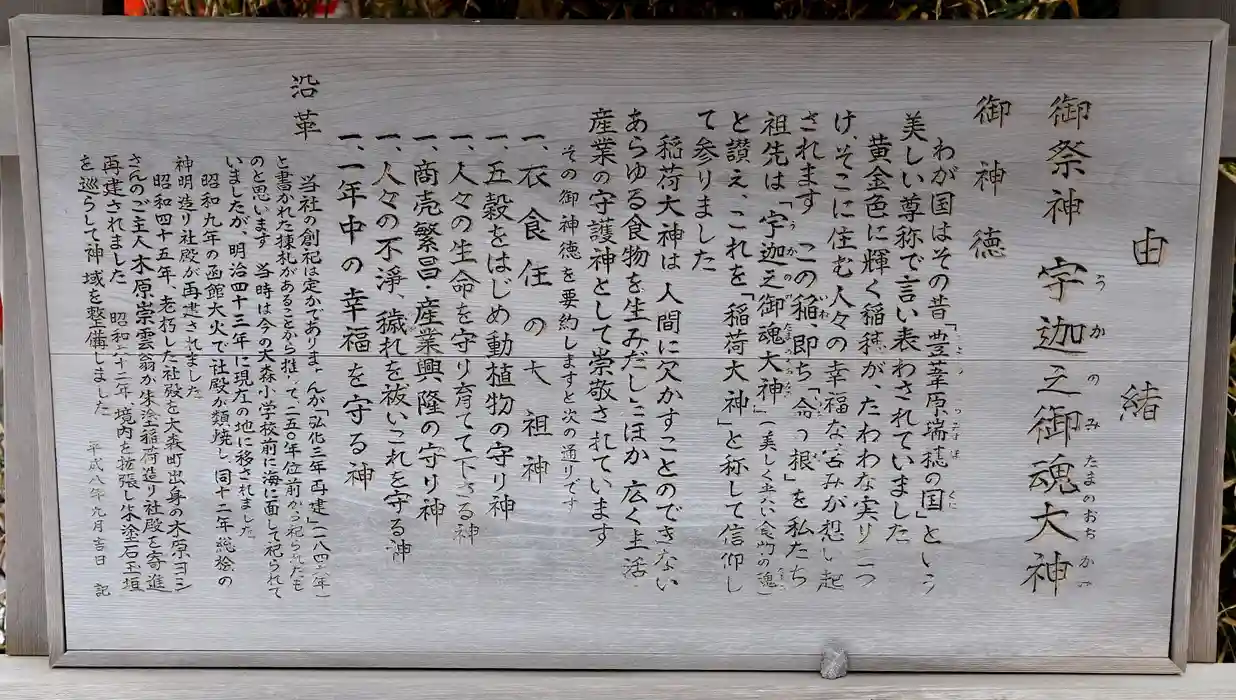 由緒
御祭神 宇迦之御魂大神
うかのみたまのおおかみ
御神徳
わが国はその昔「豊葦原瑞穂の国」という
美しい尊称で言い表わされていました
黄金色に輝く稲穂が、たわわな実りをつ
け、そこに住む人々の幸福な営みが想い起
されます この稲、即ち「命の根」を私たち
祖先は「宇迦之御魂大神」(美しく尊い食物の魂)
と讃え、これを「稲荷大神」と称して信仰し
て参りました
稲荷大神は人間に欠かすことのできない
あらゆる食物を生みだし、ほか広く生活・
産業の守護神として崇敬されています
その御神徳を要約しますと次の通りです
一、衣食住の大祖神
一、五穀をはじめ動植物の守り神
一、人々の生命を守り育てて下さる神
一、商売繁昌・産業興隆の守り神
一、人々の不淨、穢れを祓いこれを守る神
一、一年中の幸福を守る神
沿革
当社の創祀は定かでありませんが「弘化三年再建」(一八四六年)
と書かれた棟札があることから推して、二五〇年位前から祀られたも
のと思います 当時は今の大森小学校前に海に面して祀られて
いましたが、明治四十三年に現在の地に移されました
昭和九年の函館大火で社殿が類焼し、同十二年総桧の
神明造り社殿が再建されました
昭和四十五年、老朽した社殿を大森町出身の木原ヨシ
さんのご主人木原崇雲翁が朱塗稲荷造り社殿を寄進
再建されました 昭和六十二年境内を拡張し朱塗石玉垣
を巡らして神域を整備しました
平成八年九月吉日 記